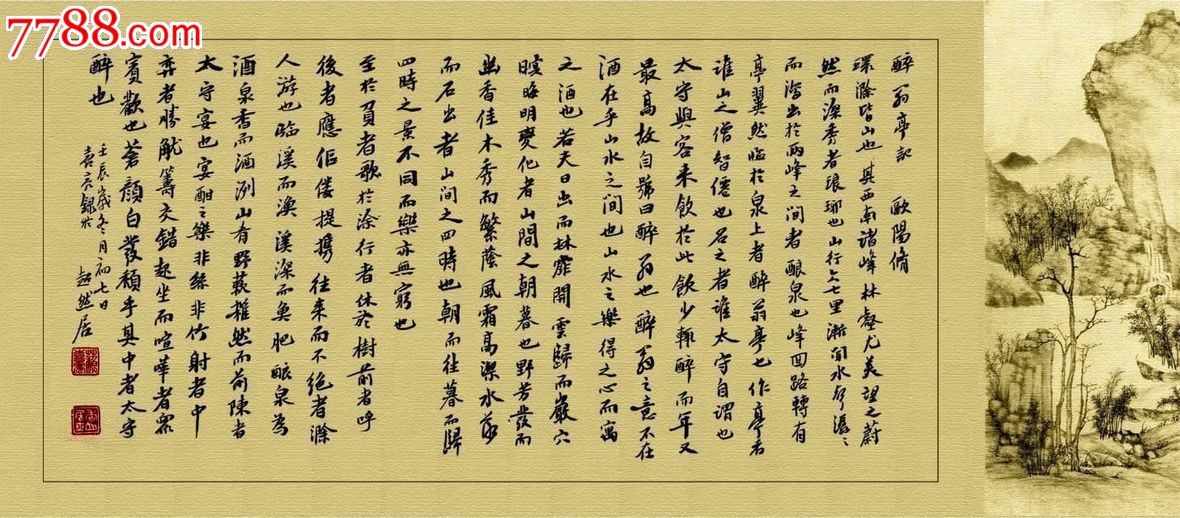 7788.com
醉翁亭記 歐陽脩
環滁皆山也其西南諸峰林壑尤美望之蔚
然而深秀者琅琊也山行六七里漸聞水聲潺〻
而瀉出於兩峰之間者釀泉也峰回路轉有
亭翼然臨於泉上者醉翁亭也作亭者
誰山之僧智僊也名之者誰太守自謂也
太守與客來飲於此飲少輒醉而年又
最高故自號曰醉翁也醉翁之意不在
酒在乎山水之間也山水之樂得之心而寓
之酒也若夫日出而林霏開雲歸而巖穴
暝晦明變化者山間之朝暮也野芳發而
幽香佳木秀而繁蔭風霜高潔水落
而石出者山間之四時也朝而往暮而歸
四時之景不同而樂亦無窮也
至於負者歌於涂行者休於樹前者呼
後者應傴僂提攜往來而不絕者滁
人游也臨溪而漁溪深而魚肥釀泉為
酒泉香而酒洌山有野蔌雜然而前陳者
太守宴也宴酣之樂非絲非竹射者中
弈者勝觥籌交錯起坐而喧嘩者眾
賓歡也蒼顏白發頹乎其中者太守
醉也
壬辰歲冬月初七日
錄於 超然居